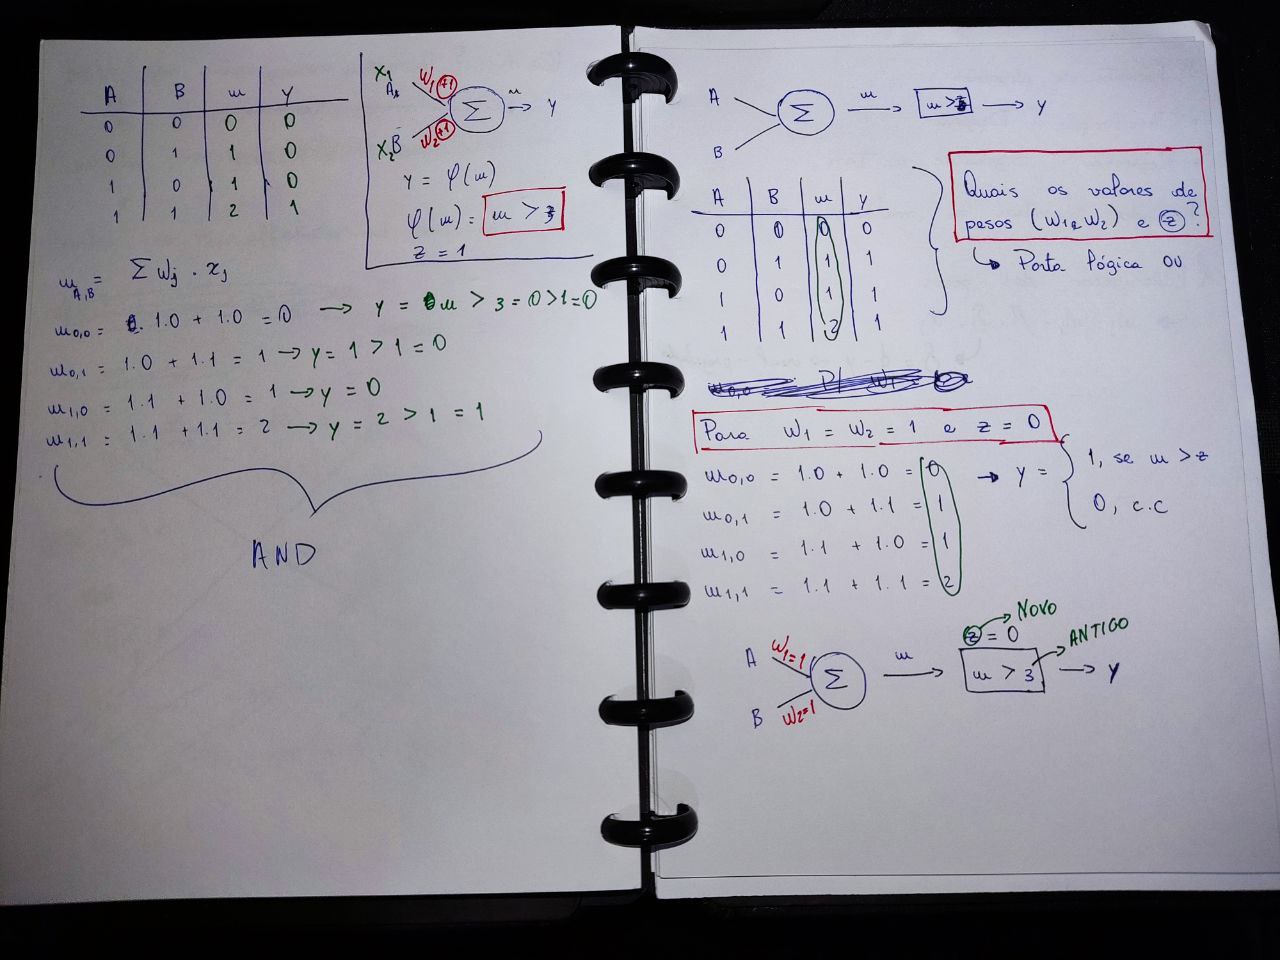 A B u Y
0 0 0 0
0 1 1 0
1 0 1 0
1 1 2 1
X1 A W1 +1
Σ u → Y
X2 B W2 +1
Y = φ(u)
φ(u) = u > z
z = 1
u A,B = Σ Wj . xj
u0,0 = 1.0 + 1.0 = 0 → Y = u > 3 = 0 > 1 = 0
u0,1 = 1.0 + 1.1 = 1 → Y = 1 > 1 = 0
u1,0 = 1.1 + 1.0 = 1 → Y = 0
u1,1 = 1.1 + 1.1 = 2 → Y = 2 > 1 = 1
AND
A
Σ u → u > z → Y
B
A B u Y
0 0 0 0
0 1 1 1
1 0 1 1
1 1 2 1
Quais os valores de
pesos (W1 e W2) e z?
↳ Porta lógica OU
Para W1 = W2 = 1 e z = 0
u0,0 = 1.0 + 1.0 = 0
u0,1 = 1.0 + 1.1 = 1
u1,0 = 1.1 + 1.0 = 1
u1,1 = 1.1 + 1.1 = 2
→ Y = { 1, se u > z
0, c.c
z = 0 → NOVO
ANTIGO
A W1=1
Σ u → u > 3 → Y
B W2=1